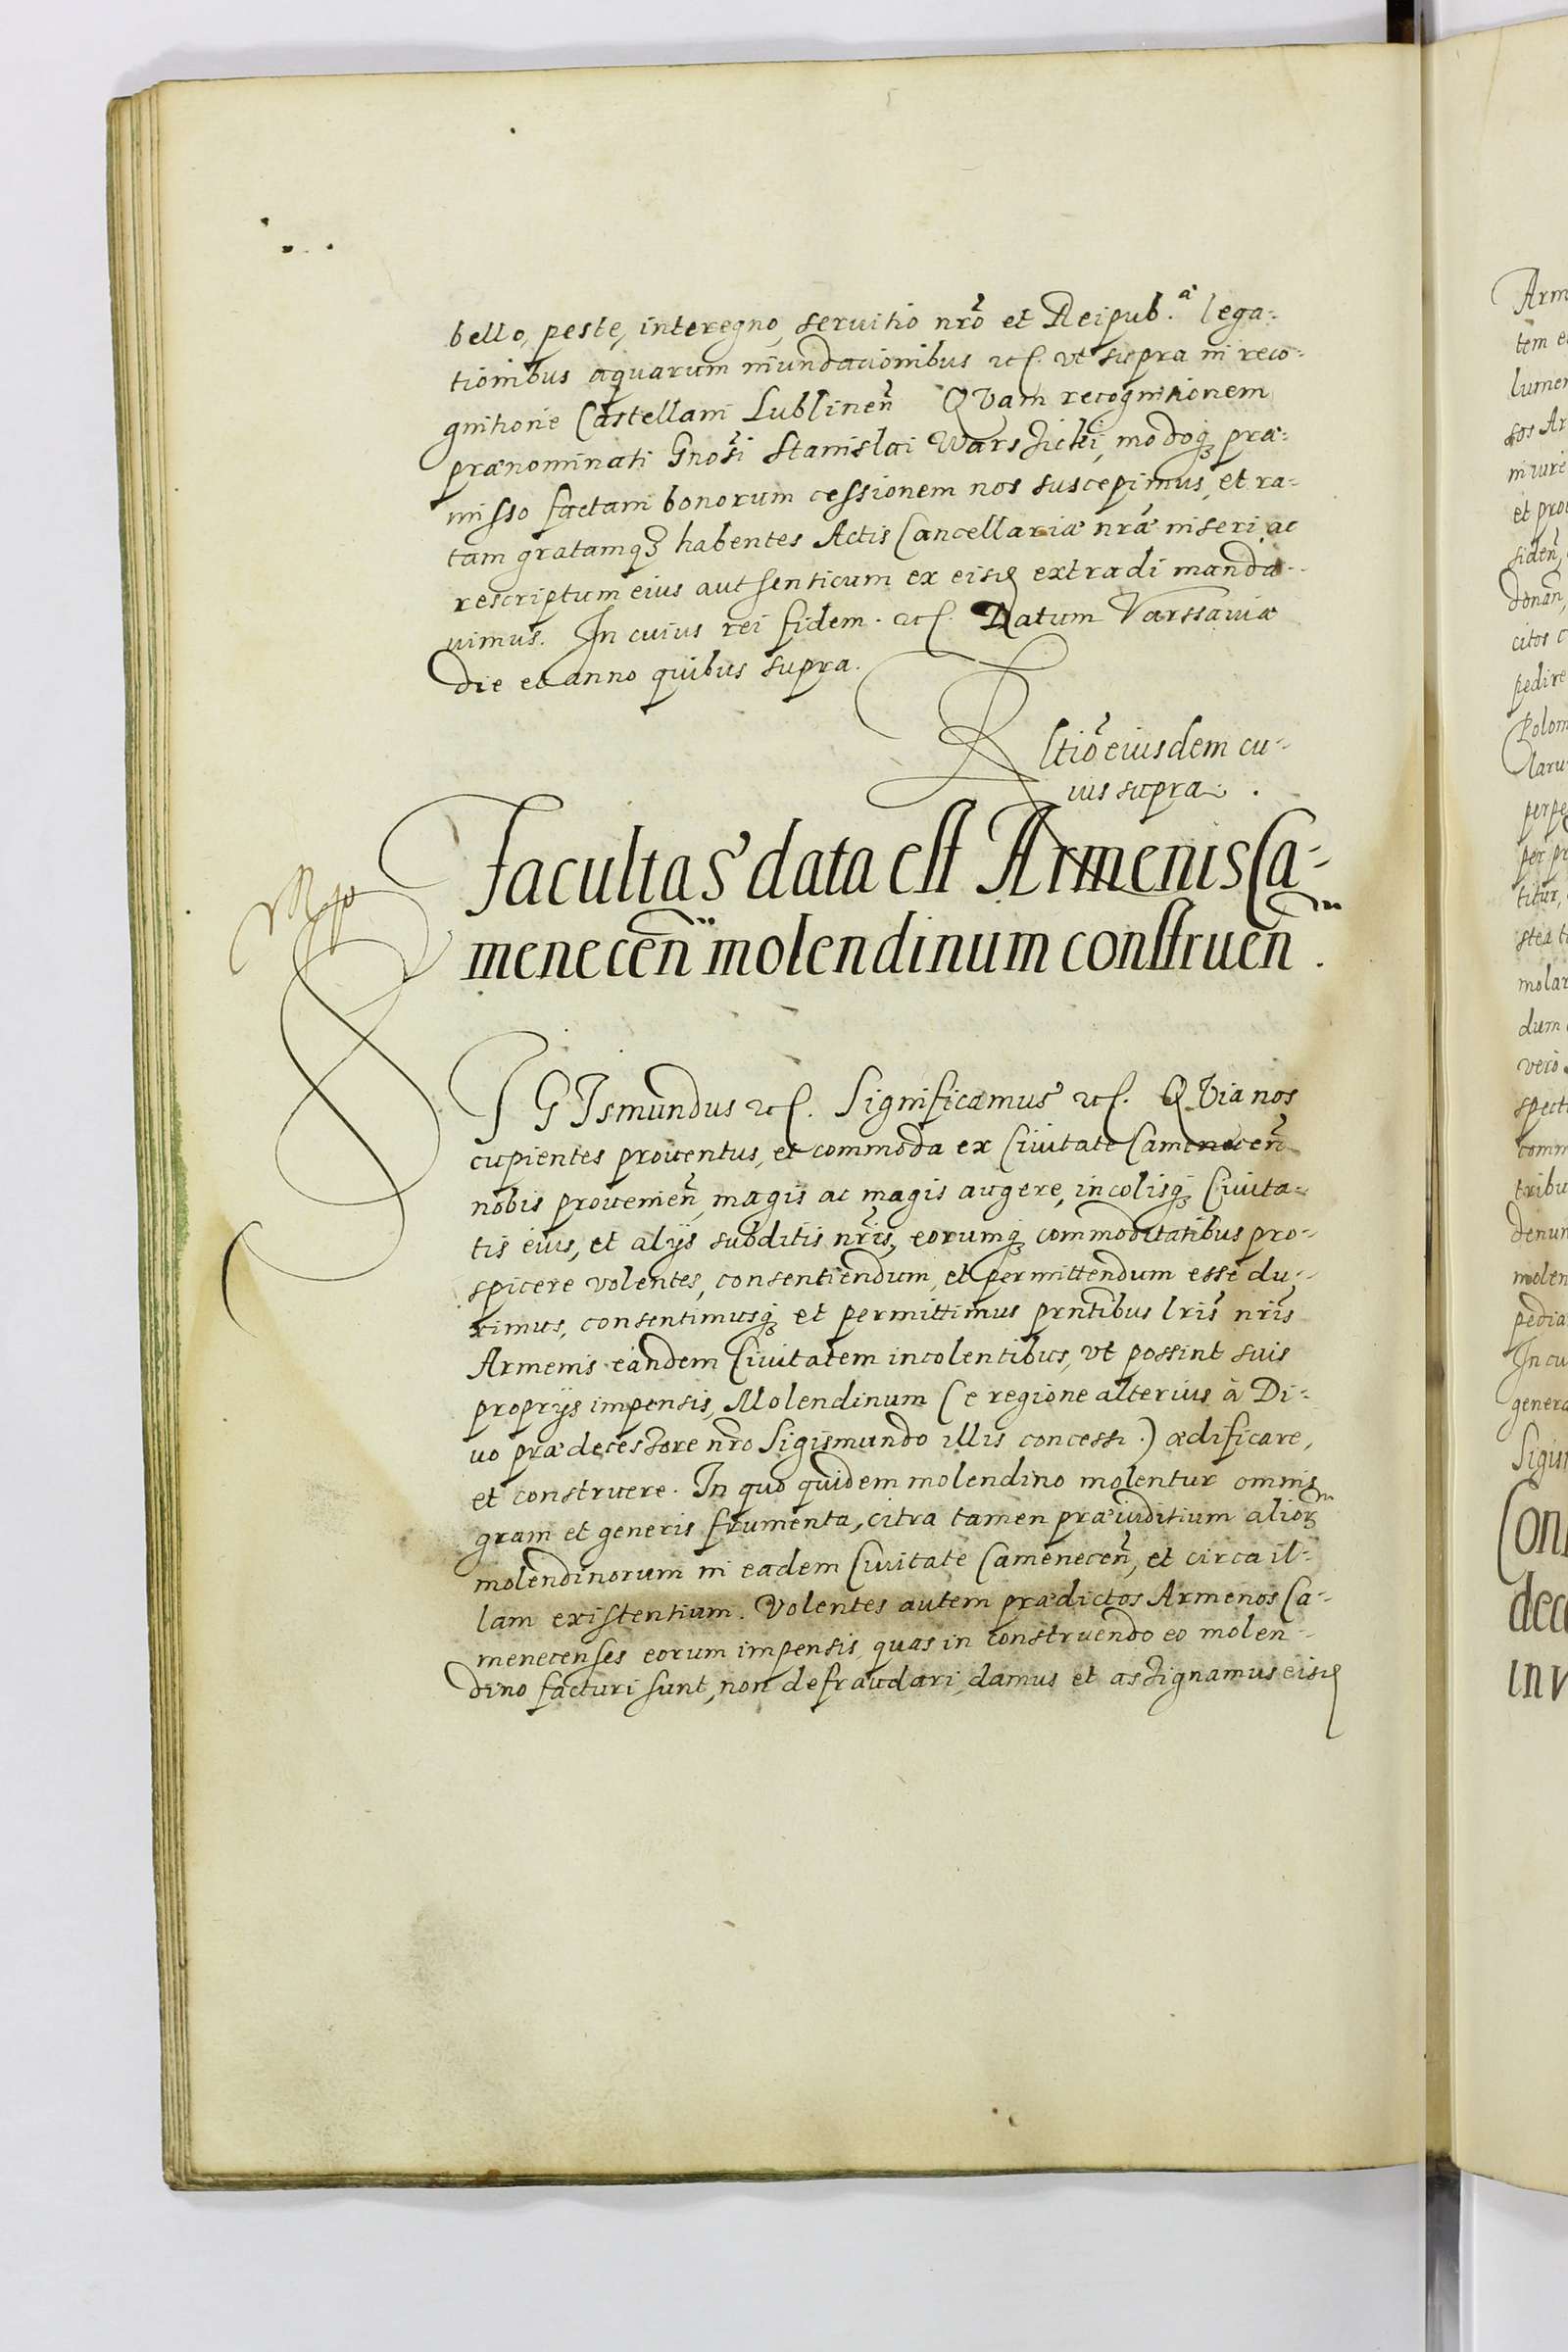 bello, peste, interegno, seruitio nrõ et Reipub.ᵃ lega-
tionibus aquarum inundationibus etc. vt supra in reco-
gnitione Castellani Lublineñ QVam recognitionem
prænominati Gnosi Stanislai WarsZicki, modoq3 præ-
misso factam bonorum cessionem nos suscepimus, et ra-
tam gratamq3 habentes Actis Cancellariæ nræ inseri, ac
rescriptum eius autsenticum ex eisd extradi manda-
uimus. In cuius rei fidem. etc. Datum Varssauiæ
die et anno quibus supra.
Rltiõ eiusdem cu-
ius supra.
Facultas data est Armenis Ca-
meneceñ molendinum construeñ.
SIGIsmundus etc. Significamus etc. QVia nos
cupientes prouentus, et commoda ex Ciuitate Cameneceñ
nobis prouenieñ, magis ac magis augere, incolisq3 Ciuita-
tis eius, et alijs subditis nris, eorumq3 commoditatibus pro-
spicere volentes, consentiendum, et permittendum esse du-
ximus, consentimusq3 et permittimus prntibus lris nris
Armenis eandem Ciuitatem incolentibus, vt possint suis
proprijs impensis, Molendinum (e regione alterius à Di-
uo prædecessore nro Sigismundo illis concessi.) ædificare,
et construere. In quo quidem molendino molentur omnis
grani et generis frumenta, citra tamen præiuditium alior
molendinorum in eadem Ciuitate Cameneceñ, et circa il-
lam existentium. Volentes autem prædictos Armenos Ca-
menecenses eorum impensis, quas in construendo eo molen-
dino facturi sunt, non defraudari, damus et assignamus eisd
Arm
tem e
lumen
sos Ar
in iure
et pro
sideñ,
donañ,
citos c
pedire
Polon
laru
perpe
per pr
titur,
stea t
molar
dum
vero
spect
comm
tribu
denun
molen
pedia
In cu
genera
Sigis
Con
dec
inv